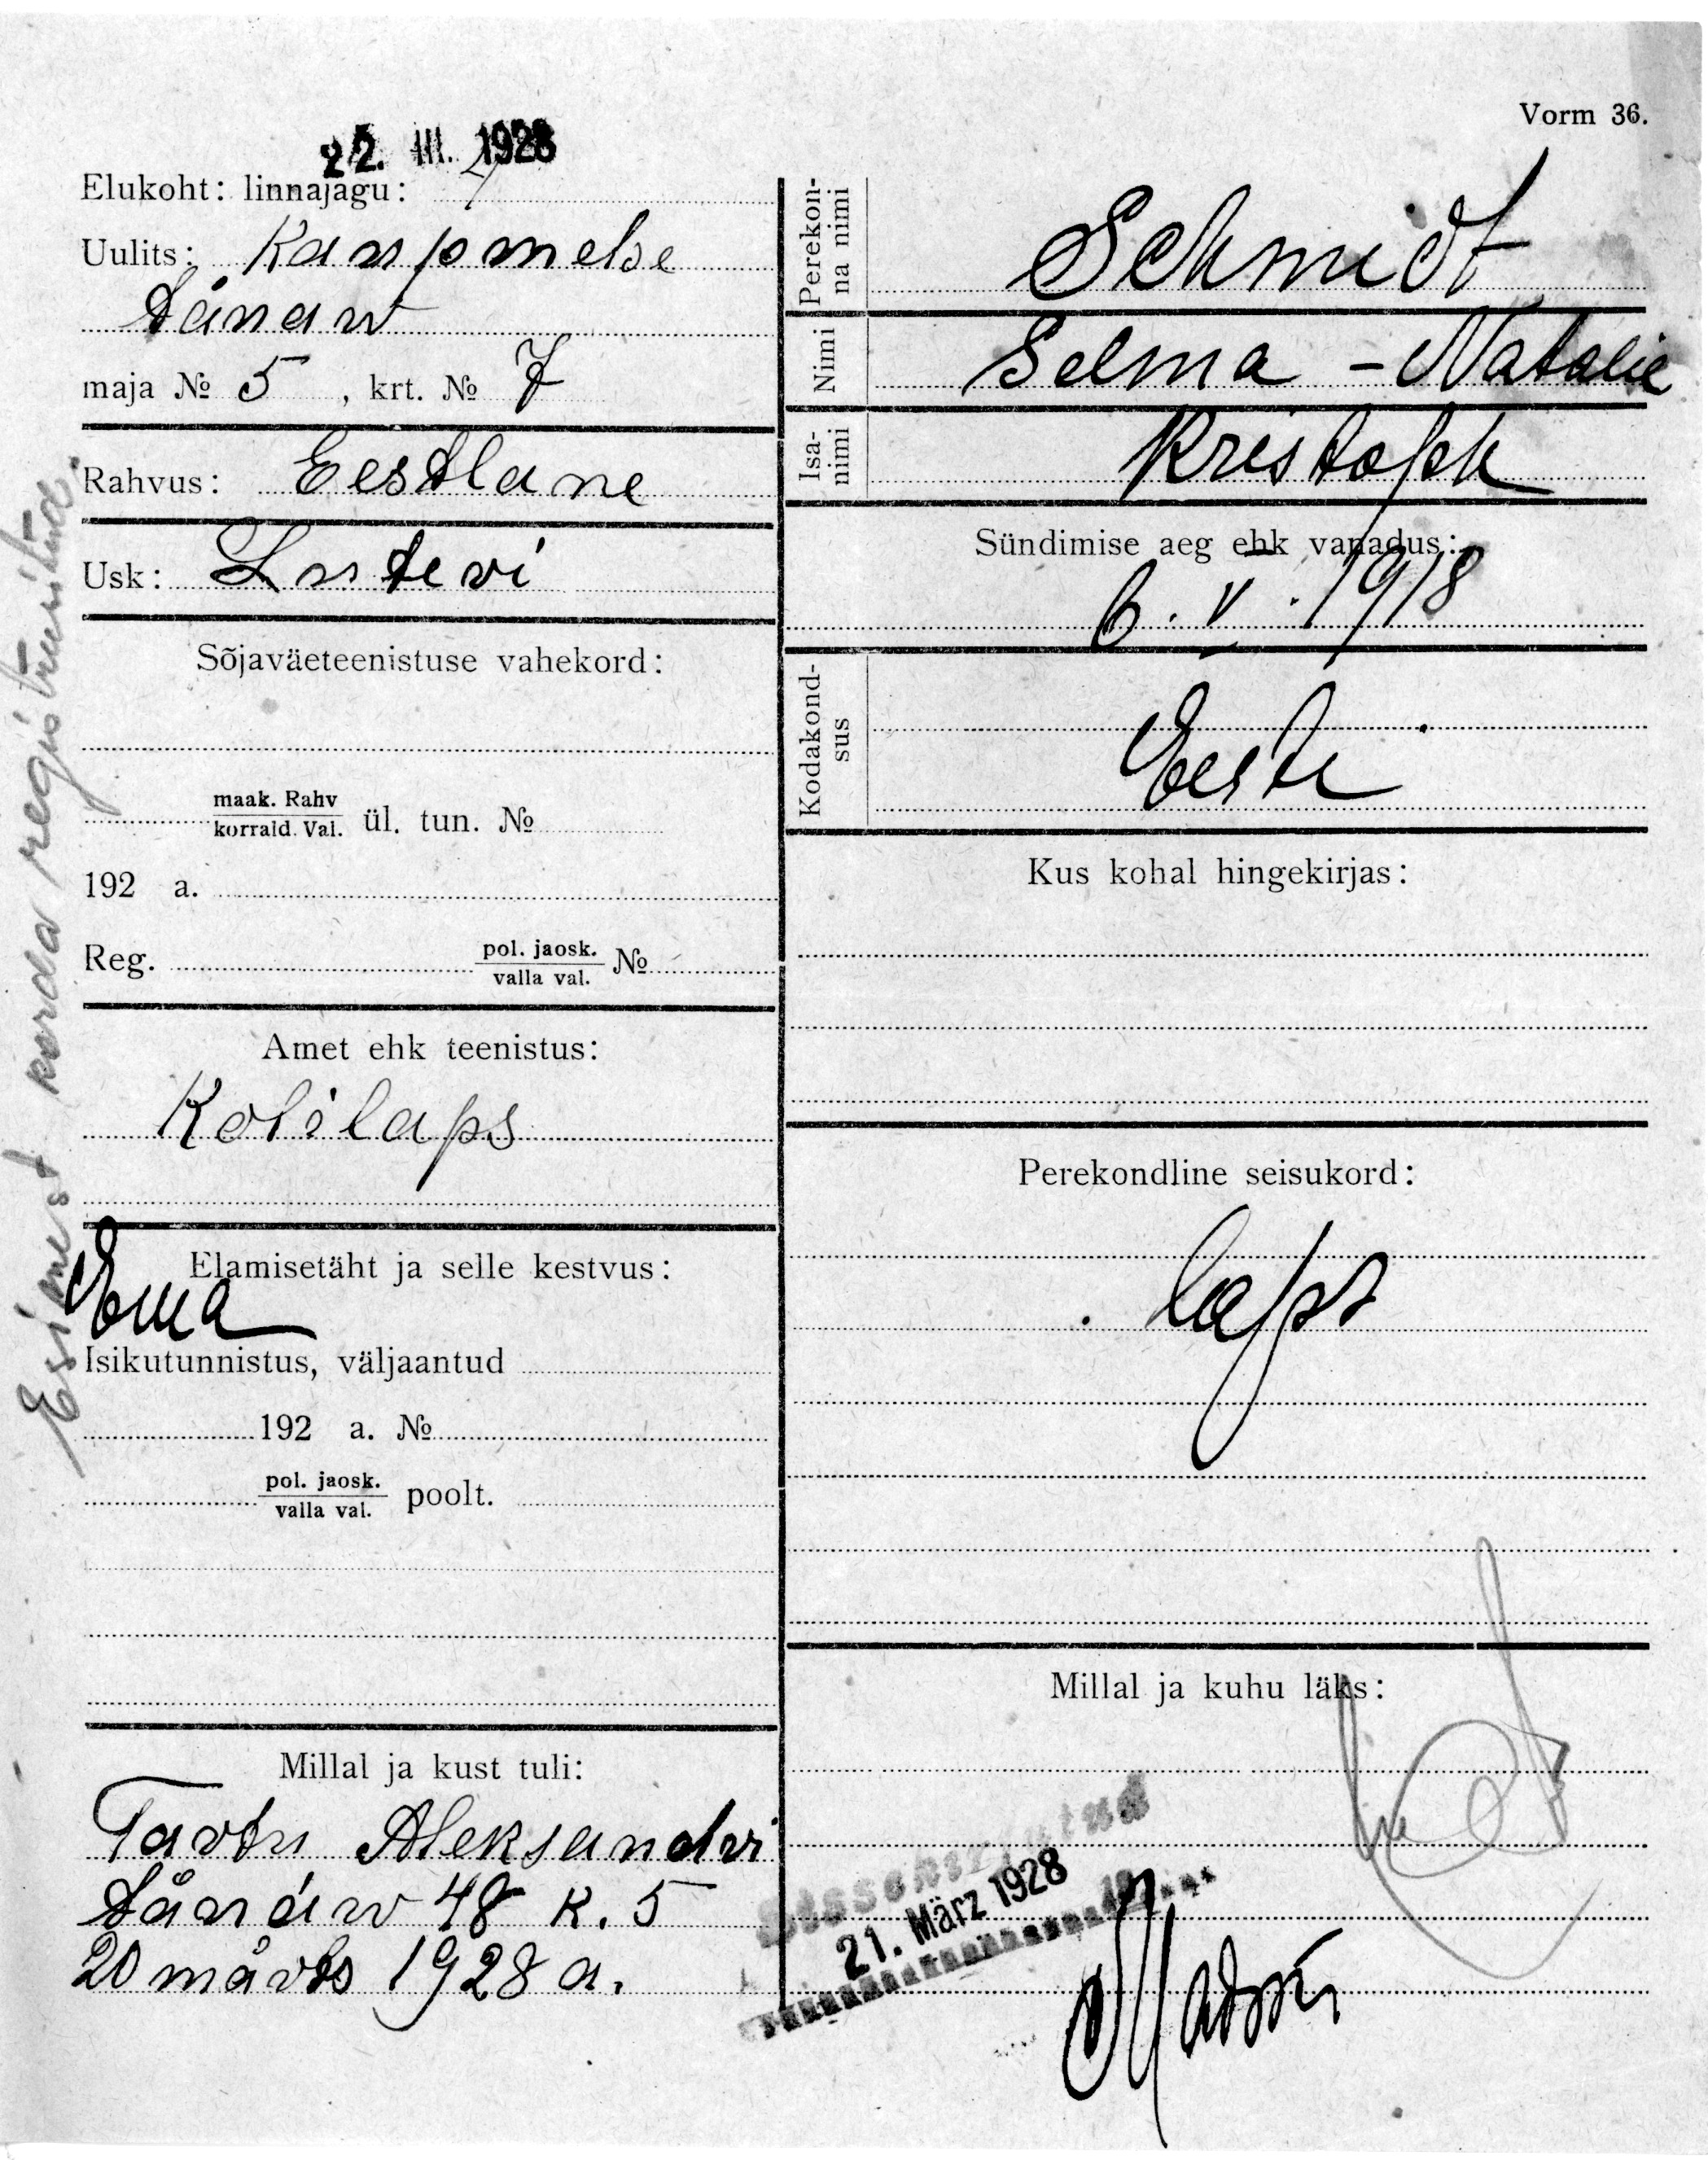 Vorm 36.
22. III. 1928
Elukoht: linnajagu:
Uulits: Kaupmehe
tänaw
maja № 5, krt. № 7
Rahvus: Eestlane
Usk: Luteri
Sõjaväeteenistuse vahekord:
maak. Rahv
korrald. Val. ül. tun. №
192 a.
Reg. pol. jaosk. №
valla val.
Amet ehk teenistus:
Kolilaps
Elamisetäht ja selle kestvus:
Ema
Isikutunnistus, väljaantud
192 a. №
pol. jaosk.
valla val. poolt.
Millal ja kust tuli:
Tartu Aleksandri
tänáw 48 k. 5
20 märts 1928 a.
Esimest korda registreeritud.
Perekon-
na nimi
Schmidt
Nimi
Selma - Natalie
Isa-
nimi
Kristoph
Sündimise aeg ehk vanadus:
6. V. 1918
Kodakond-
sus
Eesti
Kus kohal hingekirjas:
Perekondline seisukord:
laps
Millal ja kuhu läks:
Sissekirjutud
21. März 1928